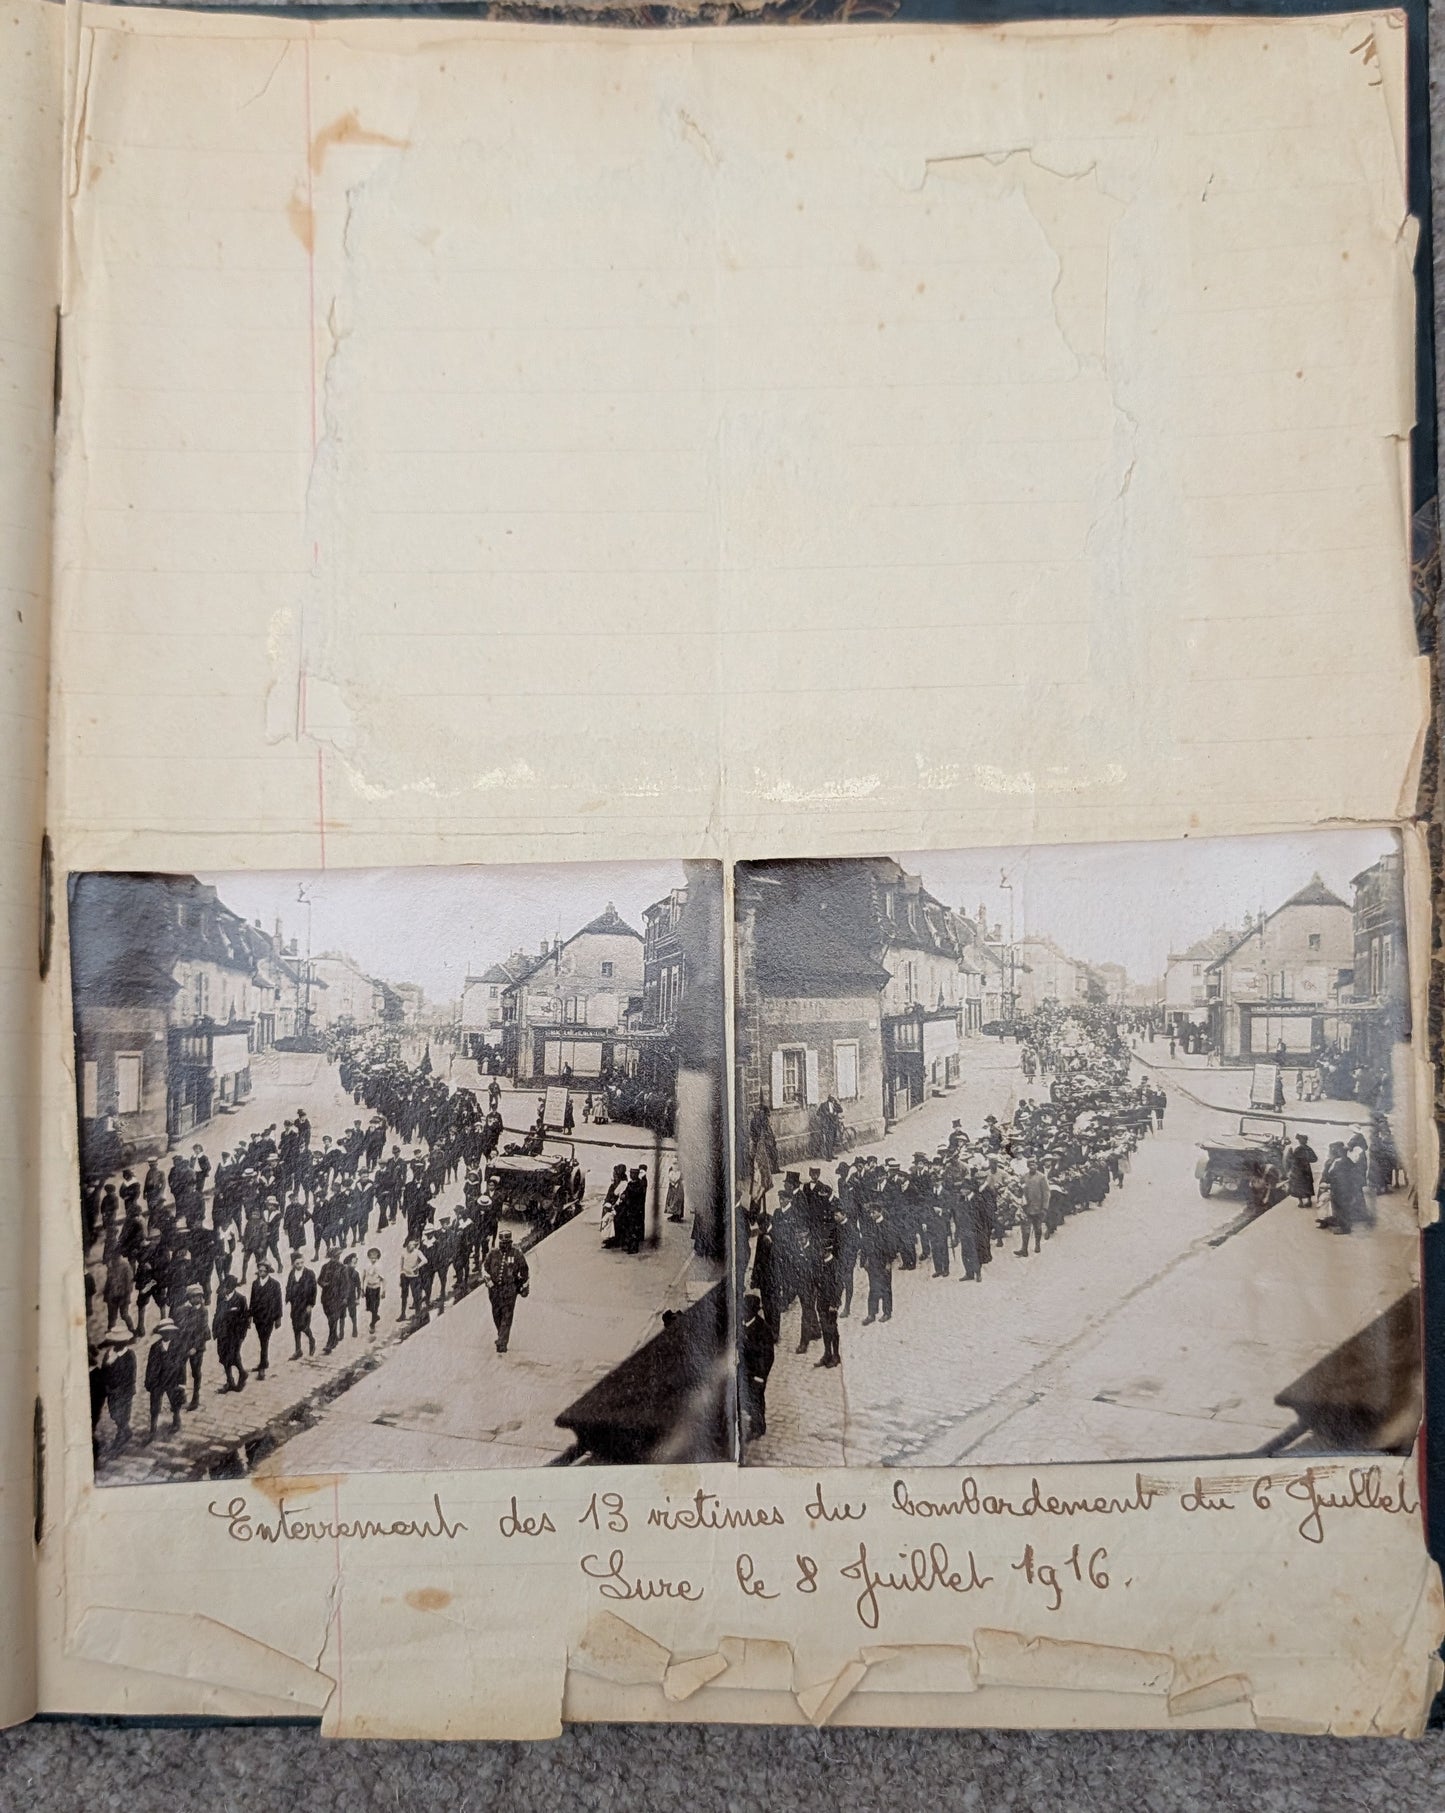 Enterrement des 13 victimes du bombardement du 6 Juillet
Lure le 8 Juillet 1916.